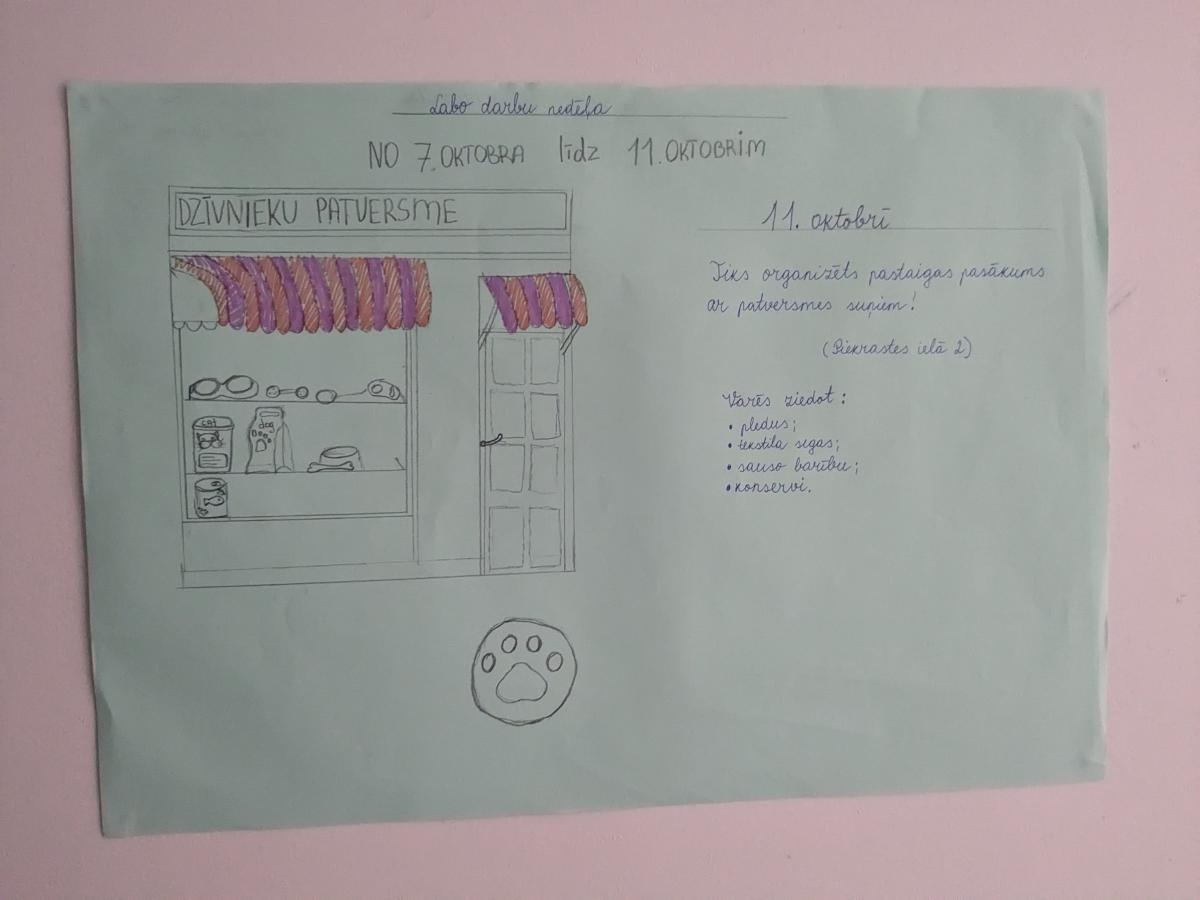 Labo darbu nedēļa
NO 7. OKTOBRA līdz 11. OKTOBRIM
DZĪVNIEKU PATVERSME
cat
dog
11. oktobrī
Tiks organizēts pastaigas pasākums
ar patversmes suņiem!
(Piekrastes ielā 2)
Varēs ziedot:
• pledus;
• tekstila segas;
• sauso barību;
• konservi.